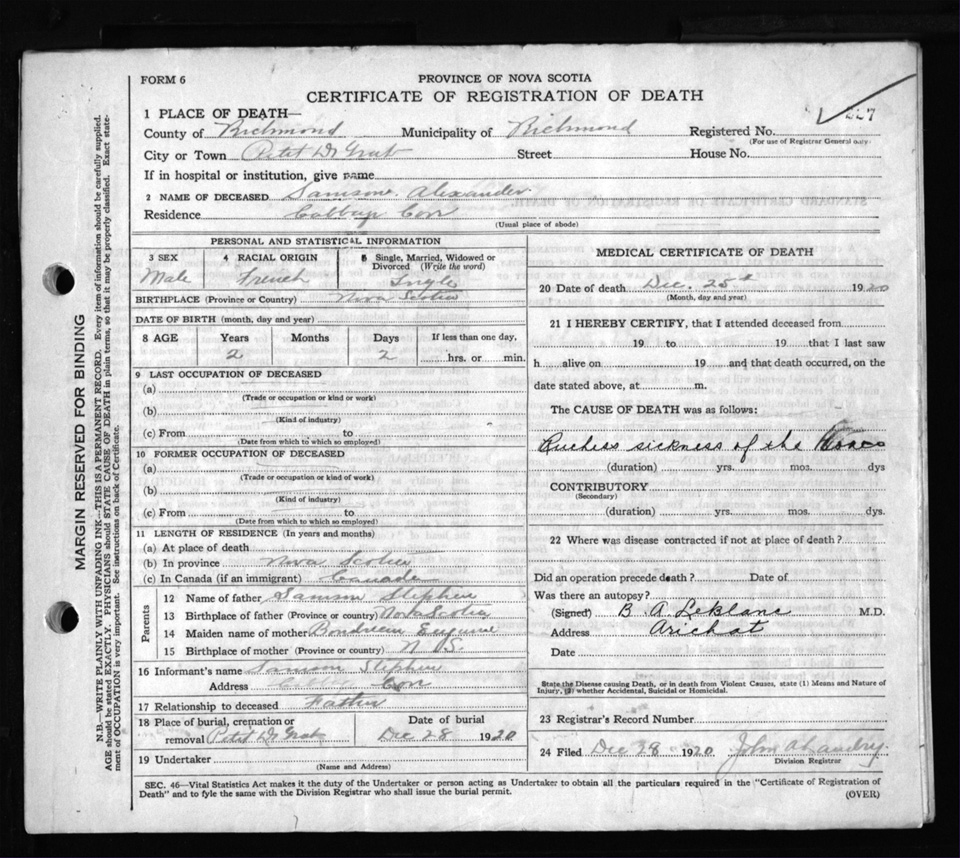 FORM 6
PROVINCE OF NOVA SCOTIA
CERTIFICATE OF REGISTRATION OF DEATH
1 PLACE OF DEATH—
County of Richmond Municipality of Richmond Registered No. 227
(For use of Registrar General only)
City or Town Petit De Grat Street House No.
If in hospital or institution, give name
2 NAME OF DECEASED Samson Alexander
Residence
(Usual place of abode)
PERSONAL AND STATISTICAL INFORMATION
3 SEX 4 RACIAL ORIGIN 5 Single, Married, Widowed or Divorced (Write the word)
Male French Single
BIRTHPLACE (Province or Country) Nova Scotia
DATE OF BIRTH (month, day and year)
8 AGE Years Months Days If less than one day,
2 2 hrs. or min.
9 LAST OCCUPATION OF DECEASED
(a)
(Trade or occupation or kind or work)
(b)
(Kind of industry)
(c) From to
(Date from which to which so employed)
10 FORMER OCCUPATION OF DECEASED
(a)
(Trade or occupation or kind of work)
(b)
(Kind of industry)
(c) From to
(Date from which to which so employed)
11 LENGTH OF RESIDENCE (In years and months)
(a) At place of death
(b) In province Nova Scotia
(c) In Canada (if an immigrant) Canada
Parents
12 Name of father Samson Stephen
13 Birthplace of father (Province or country) Nova Scotia
14 Maiden name of mother Boudreau
15 Birthplace of mother (Province or country) N S.
16 Informant's name Samson Stephen
Address
17 Relationship to deceased Father
18 Place of burial, cremation or Date of burial
removal Petit De Grat Dec 28 1920
19 Undertaker
(Name and Address)
MEDICAL CERTIFICATE OF DEATH
20 Date of death Dec. 25th 1920
(Month, day and year)
21 I HEREBY CERTIFY, that I attended deceased from
19 to 19 that I last saw
h alive on 19 and that death occurred, on the
date stated above, at m.
The CAUSE OF DEATH was as follows:
sickness of the
(duration) yrs. mos. dys
CONTRIBUTORY
(Secondary)
(duration) yrs. mos. dys.
22 Where was disease contracted if not at place of death?
Did an operation precede death? Date of
Was there an autopsy?
(Signed) B. A LeBlanc M.D.
Address Arichat
Date
State the Disease causing Death, or in death from Violent Causes, state (1) Means and Nature of
Injury, (2) whether Accidental, Suicidal or Homicidal.
23 Registrar's Record Number
24 Filed Dec 28 1920 John A Landry
Division Registrar
SEC. 46—Vital Statistics Act makes it the duty of the Undertaker or person acting as Undertaker to obtain all the particulars required in the "Certificate of Registration of
Death" and to fyle the same with the Division Registrar who shall issue the burial permit.
(OVER)
MARGIN RESERVED FOR BINDING
N.B.—WRITE PLAINLY WITH UNFADING INK—THIS IS A PERMANENT RECORD. Every item of information should be carefully supplied.
AGE should be stated EXACTLY. PHYSICIANS should STATE CAUSE OF DEATH in plain terms, so that it may be properly classified. Exact state-
ment of OCCUPATION is very important. See instructions on back of Certificate.